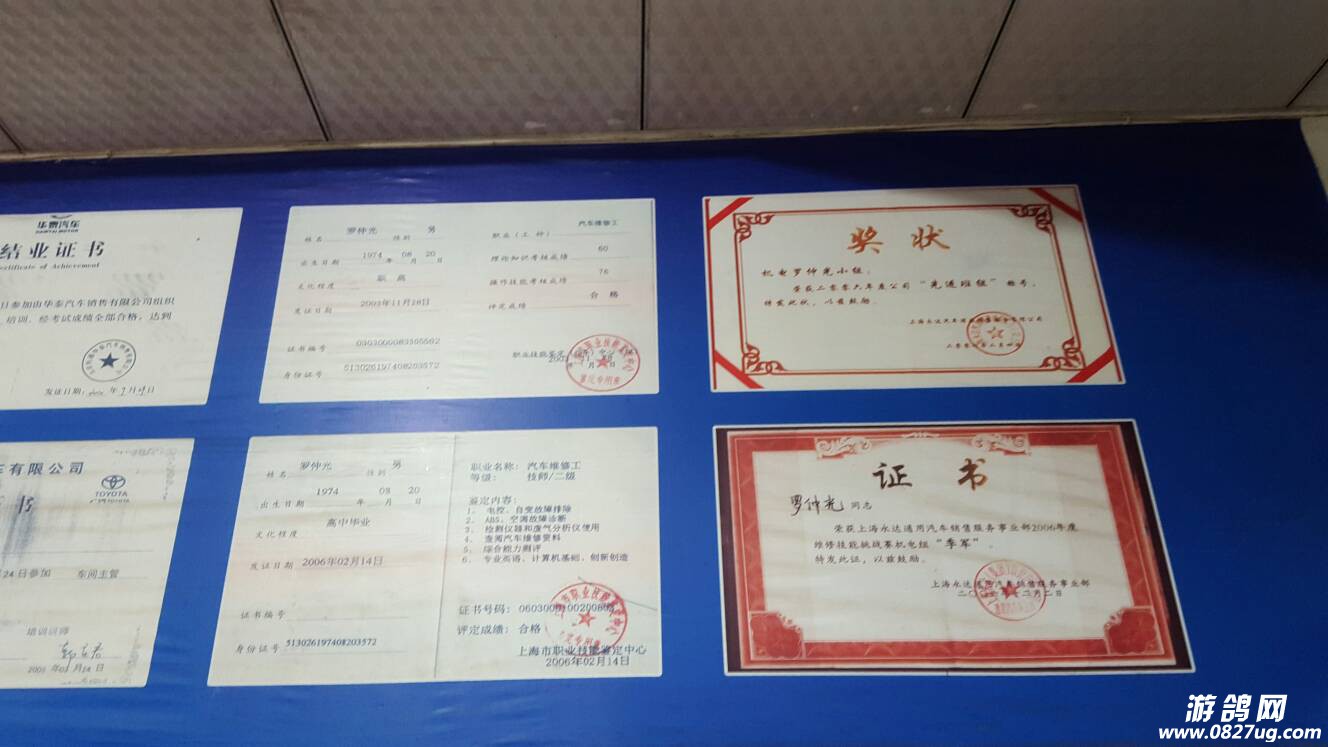 华泰汽车
HAWTAI MOTOR
结业证书
Certificate of Achievement
参加由华泰汽车销售有限公司组织
培训、经考试成绩全部合格，达到
发证日期：
姓名 罗仲光 性别 男
出生日期 1974 年 08 月 20 日
文化程度 职高
发证日期 2003年11月28日
证书编号
身份证号 513026197408203572
汽车维修工
职业（工种）
理论知识考核成绩 60
操作技能考核成绩 76
评定成绩 合格
职业技能鉴定（指导）中心
奖状
机电罗仲光小组：
荣获二零零六年度公司“先进班组”称号，
特发此状，以兹鼓励。
车有限公司
TOYOTA
书
24日参加 车间主管
培训讲师
姓名 罗仲光 性别 男
出生日期 1974 年 08 月 20 日
文化程度 高中毕业
发证日期 2006年02月14日
证书编号
身份证号 513026197408203572
职业名称： 汽车维修工
等级： 技师/二级
鉴定内容：
1、 电控、自变故障排除
2、 ABS、空调故障诊断
3、 检测仪器和废气分析仪使用
4、 查阅汽车维修资料
5、 综合能力测评
6、 专业英语、计算机基础、创新创造
证书号码：
评定成绩： 合格
上海市职业技能鉴定中心
2006年02月14日
证书
罗仲光 同志
荣获上海永达通用汽车销售服务事业部2006年度
维修技能挑战赛机电组“季军”。
特发此证，以兹鼓励。
上海永达通用汽车销售服务事业部
游鸽网
www.0827ug.com